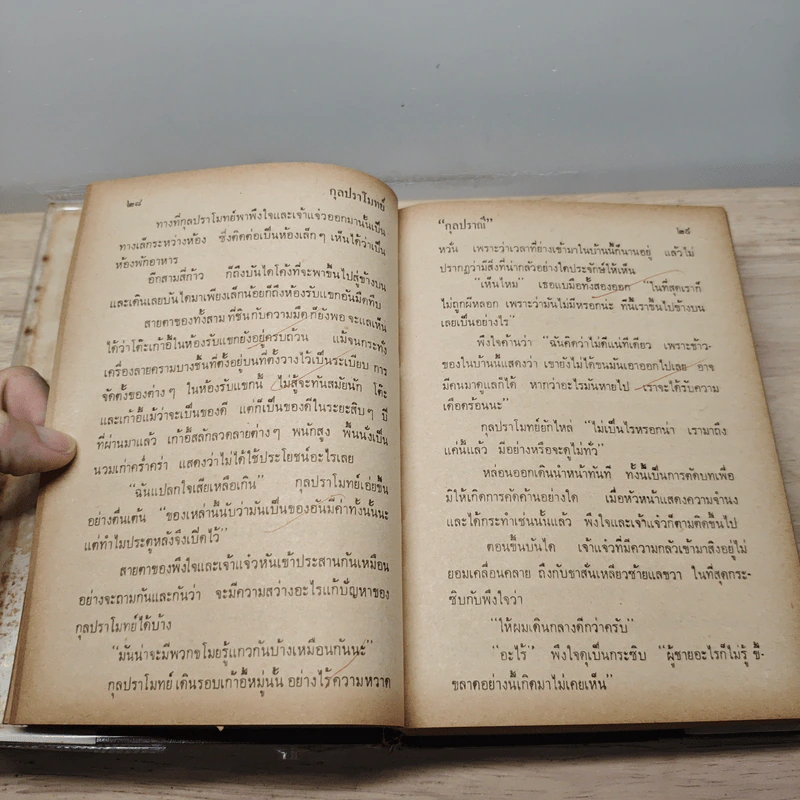 ๒๘ กุลปราโมทย์
ทางที่กุลปราโมทย์พาพึงใจและเจ้าแจ๋วออกมานั้นเป็น
ทางเล็กระหว่างห้อง ซึ่งติดต่อเป็นห้องเล็กๆ เห็นได้ว่าเป็น
ห้องพักอาหาร
อีกสามสี่ก้าว ก็ถึงบันไดโค้งที่จะพาขึ้นไปสู่ข้างบน
และเดินเลยบันไดมาเพียงเล็กน้อยก็ถึงห้องรับแขกอันมืดทึบ
สายตาของทั้งสามที่ชินกับความมืด ก็ยังพอจะแลเห็น
ได้ว่าโต๊ะเก้าอี้ในห้องรับแขกยังอยู่ครบถ้วน แม้จนกระทั่ง
เครื่องลายครามบางชิ้นที่ตั้งอยู่บนที่ตั้งวางไว้เป็นระเบียบ การ
จัดตั้งของต่างๆ ในห้องรับแขกนี้ ไม่สู้จะทันสมัยนัก โต๊ะ
และเก้าอี้แม้ว่าจะเป็นของดี แต่ก็เป็นของดีในระยะสิบๆ ปี
ที่ผ่านมาแล้ว เก้าอี้สลักลวดลายต่างๆ พนักสูง พื้นนั่งเป็น
นวมเก่าคร่ำคร่า แสดงว่าไม่ได้ใช้ประโยชน์อะไรเลย
“ฉันแปลกใจเสียเหลือเกิน” กุลปราโมทย์เอ่ยขึ้น
อย่างตื่นเต้น “ของเหล่านี้นับว่ามันเป็นของอันมีค่าทั้งนั้นนะ
แต่ทำไมประตูหลังจึงเปิดไว้”
สายตาของพึงใจและเจ้าแจ๋วหันเข้าประสานกันเหมือน
อย่างจะถามกันและกันว่า จะมีความสว่างอะไรแก้ปัญหาของ
กุลปราโมทย์ได้บ้าง
“มันน่าจะมีพวกขโมยรู้แกวกันบ้างเหมือนกันนะ”
กุลปราโมทย์เดินรอบเก้าอี้หมู่นั้น อย่างไร้ความหวาด
“กุลปราณี” ๒๙
หวั่น เพราะว่าเวลาที่ย่างเข้ามาในบ้านนี้ก็นานอยู่ แล้วไม่
ปรากฏว่ามีสิ่งที่น่ากลัวอย่างใดประจักษ์ให้เห็น
“เห็นไหม” เธอแบมือทั้งสองออก “ในที่สุดเราก็
ไม่ถูกผีหลอก เพราะว่ามันไม่มีหรอกน่ะ ทีนี้เราขึ้นไปข้างบน
เลยเป็นอย่างไร”
พึงใจค้านว่า “ฉันคิดว่าไม่ดีแน่ทีเดียว เพราะข้าว-
ของในบ้านนี้แสดงว่า เขายังไม่ได้ขนมันเอาออกไปเลย อาจ
มีคนมาดูแลก็ได้ หากว่าอะไรมันหายไป เราจะได้รับความ
เดือดร้อนนะ”
กุลปราโมทย์ยักไหล่ “ไม่เป็นไรหรอกน่า เรามาถึง
แค่นี้แล้ว มีอย่างหรือจะดูไม่ทั่ว”
หล่อนออกเดินนำหน้าทันที ทั้งนี้เป็นการตัดบทเพื่อ
มิให้เกิดการคัดค้านอย่างใด เมื่อหัวหน้าแสดงความจำนง
และได้กระทำเช่นนั้นแล้ว พึงใจและเจ้าแจ๋วก็ตามติดขึ้นไป
ตอนขึ้นบันได เจ้าแจ๋วที่มีความกลัวเข้ามาสิงอยู่ไม่
ยอมเคลื่อนคลาย ถึงกับขาสั่นเหลียวซ้ายแลขวา ในที่สุดกระ-
ซิบกับพึงใจว่า
“ให้ผมเดินกลางดีกว่าครับ”
“อะไร้” พึงใจดุเป็นกระซิบ “ผู้ชายอะไรก็ไม่รู้ ขี้-
ขลาดอย่างนี้เกิดมาไม่เคยเห็น”